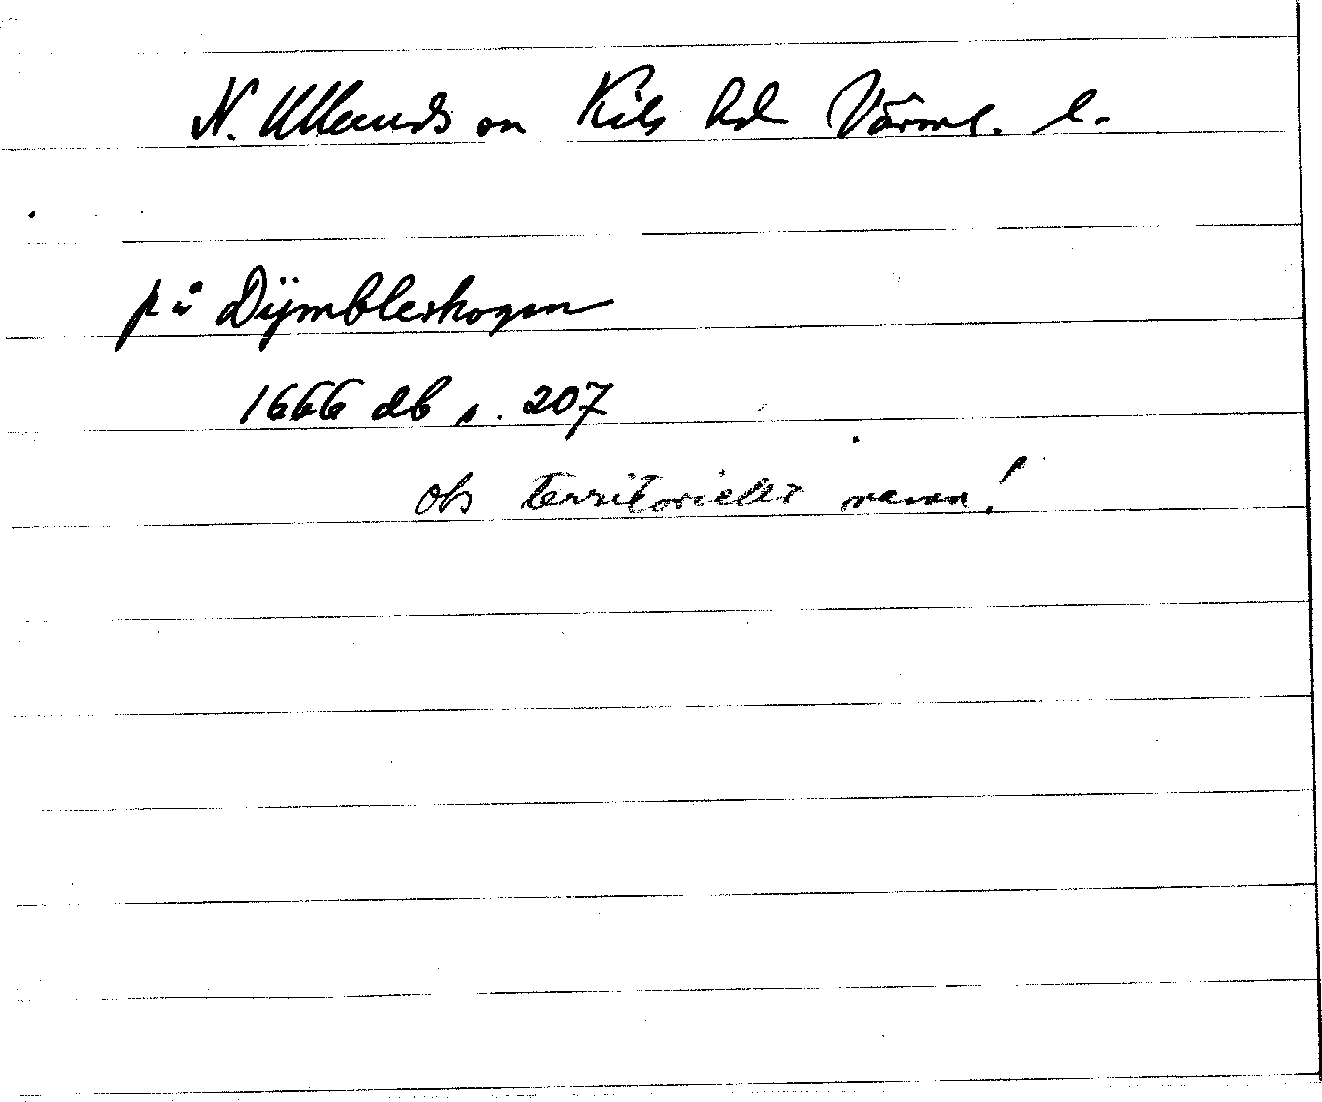 N. Ulleruds sn Kils hd Värml. l.
på Dÿmbleskogen
1666 db s. 207
obs territoriellt namn!